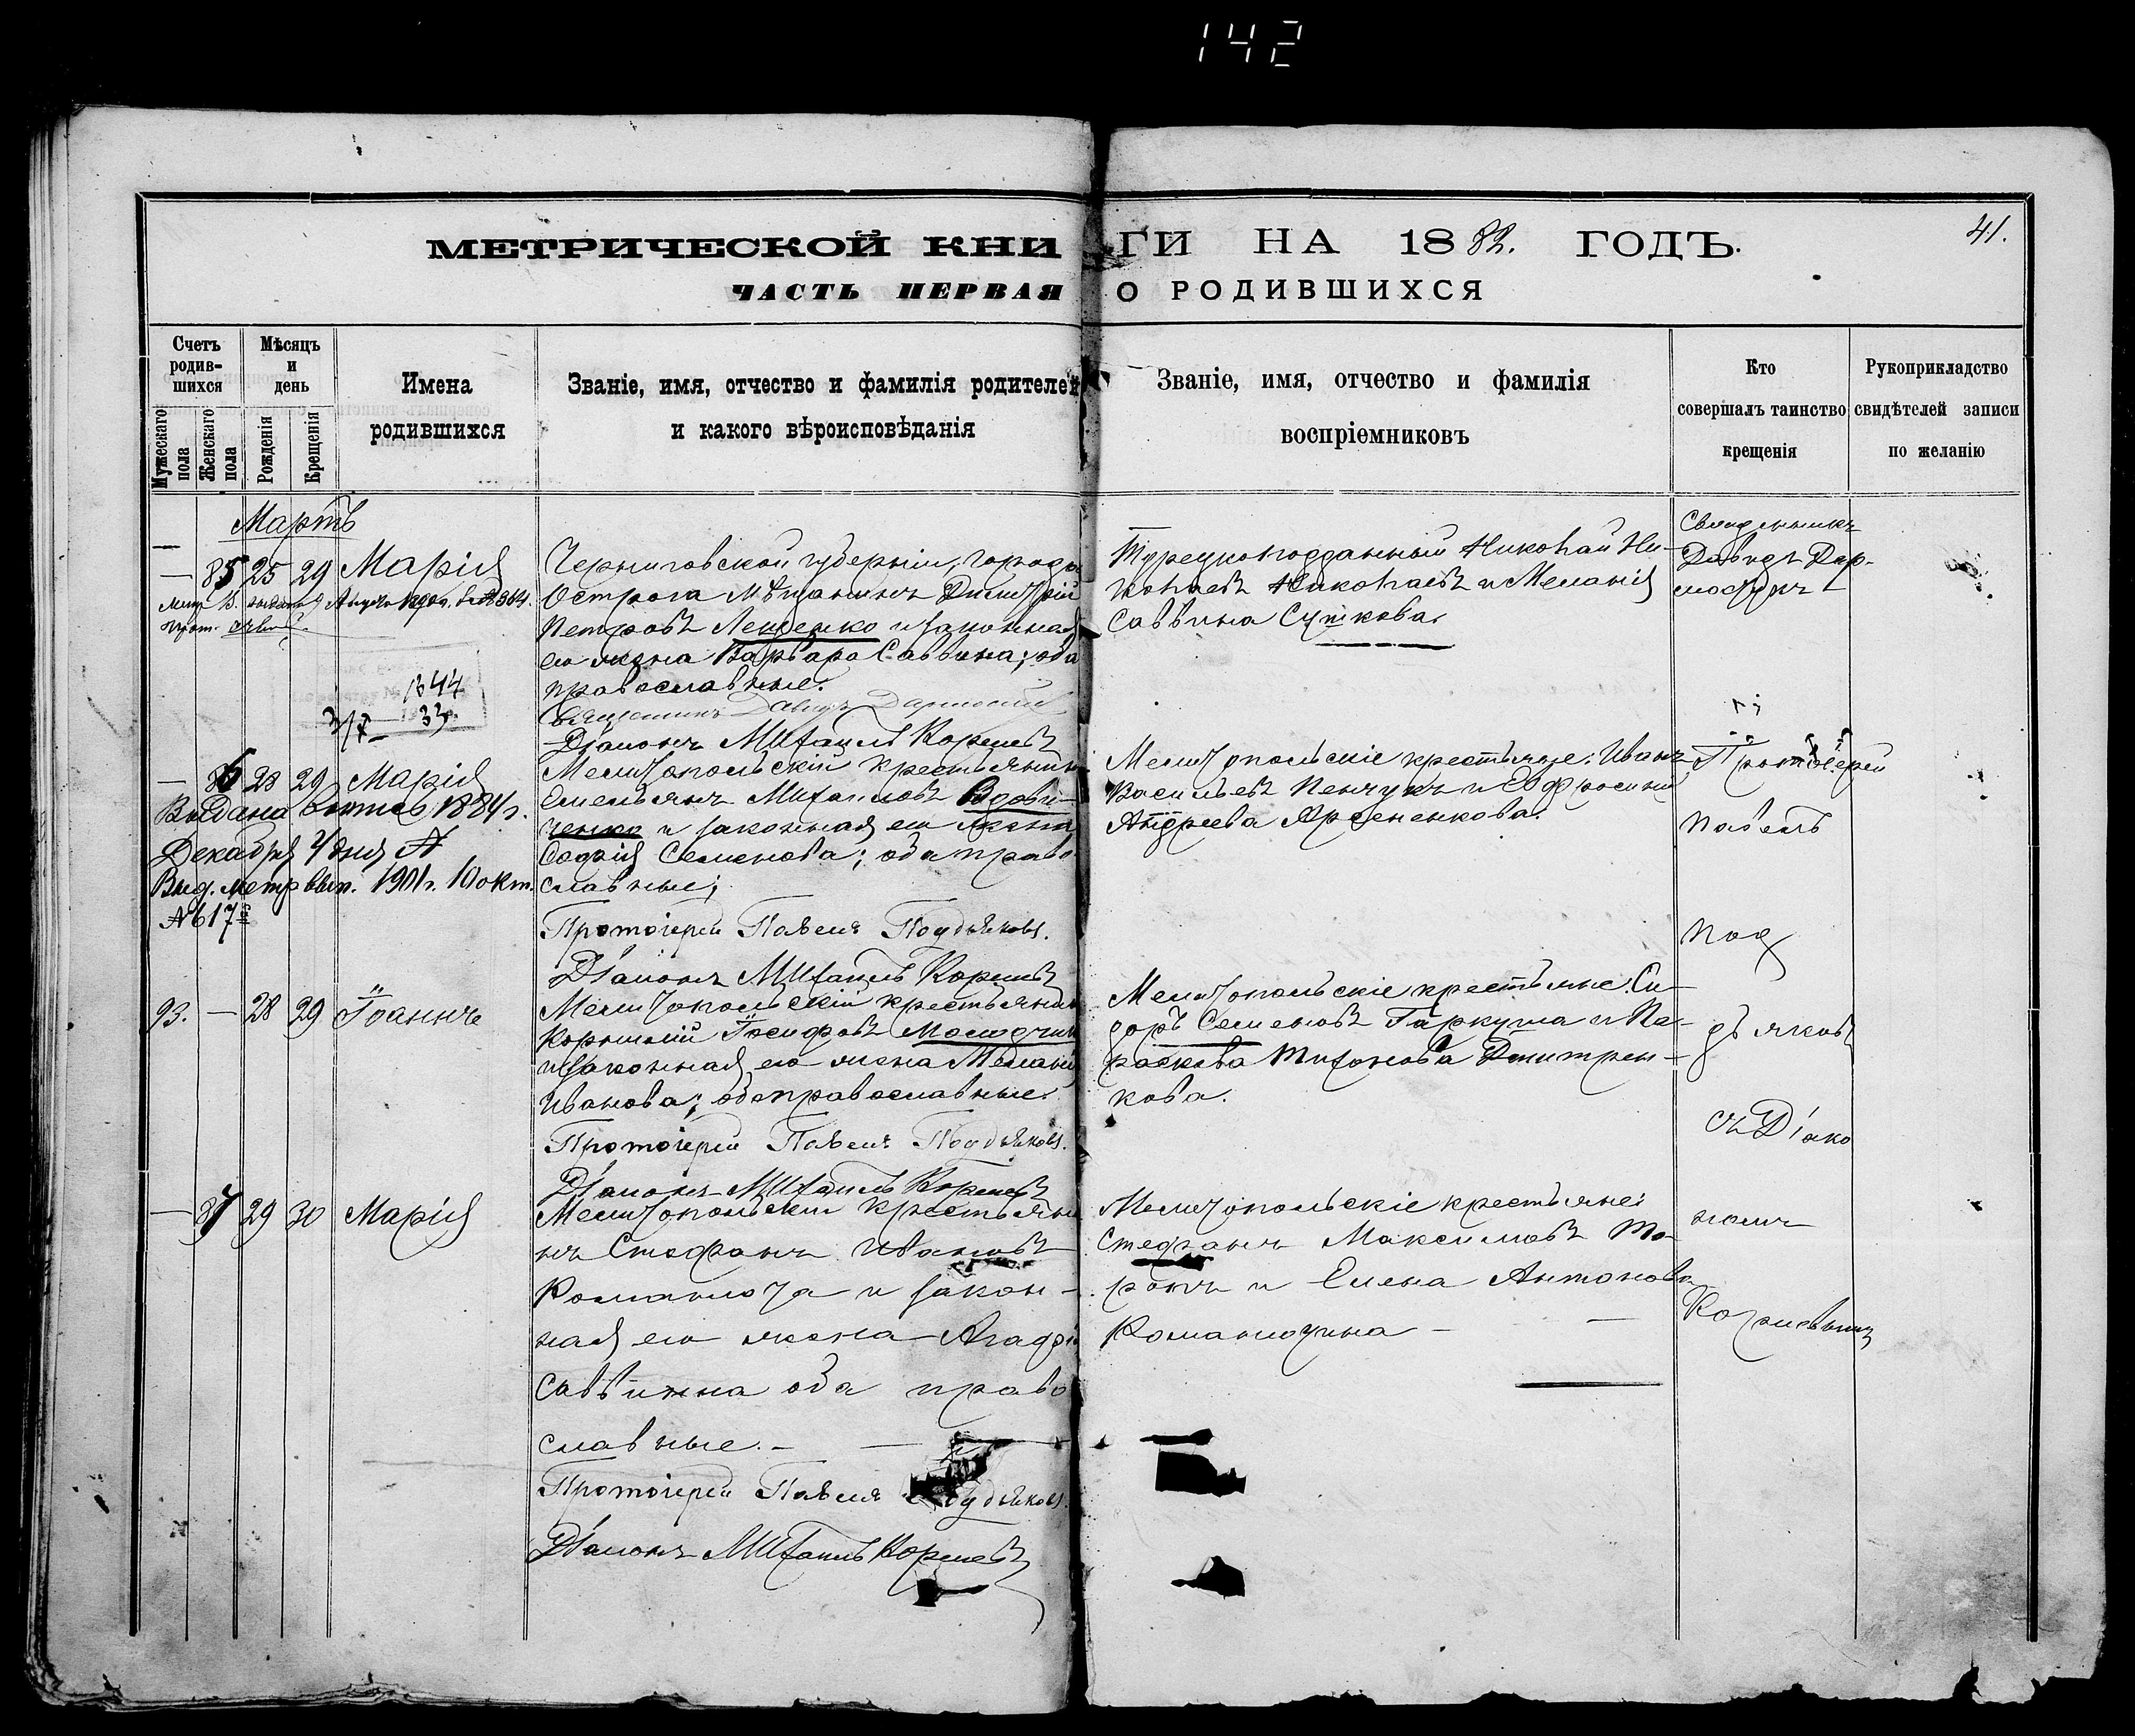 142
МЕТРИЧЕСКОЙ КНИГИ НА 1882. ГОДЪ.
41.
ЧАСТЬ ПЕРВАЯ О РОДИВШИХСЯ
Счетъ родившихся
Мужескаго пола
Женскаго пола
Мѣсяцъ и день
Рожденія
Крещенія
Имена
родившихся
Званіе, имя, отчество и фамилія родителей
и какого вѣроисповѣданія
Званіе, имя, отчество и фамилія
воспріемниковъ
Кто
совершалъ таинство
крещенія
Рукоприкладство
свидѣтелей записи
по желанію
Мартъ
— 85 25 29 Марія
Черниговской губерніи, города
Острога мѣщанинъ Димитрій
Петровъ Лещенко и законная
его жена Варвара Саввина; оба
православные.
Священникъ Давидъ
Діаконъ Михаилъ Корневъ
Турецкоподданный Николай Ни-
колаевъ Николаевъ и Меланія
Саввина Сушкова.
Священникъ
Давидъ Дар-
1344
33
— 86 28 29 Марія
Выдана 1884 г.
Декабря 4 дня №
Выд. метр. вып. 1901 г. 10 окт.
№ 617
Мелитопольскій крестьянинъ
Емельянъ Михаиловъ Вдови-
ченко и законная его жена
Софія Семенова; оба право-
славные;
Протоіерей Павелъ Поддьяковъ.
Діаконъ Михаилъ Корневъ
Мелитопольскіе крестьяне: Иванъ
Васильевъ Пенчукъ и Евфросинія
Андреева
Протоіерей
Павелъ
Под
дьяковъ
съ Діако
номъ
Корневымъ
93. — 28 29 Іоаннъ
Мелитопольскій крестьянинъ
Корнилій Іосифовъ
и законная его жена Меланія
Иванова; оба православные.
Протоіерей Павелъ Поддьяковъ.
Діаконъ Михаилъ Корневъ
Мелитопольскіе крестьяне: Си-
доръ Семеновъ Гаркуша и Па-
раскева Тихонова Дмитрен-
кова.
— 87 29 30 Марія
Мелитопольскій крестьяни-
нъ Стефанъ Ивановъ
Романюта и закон-
ная его жена Агафія
Саввина оба право
славные. —
Протоіерей Павелъ Поддьяковъ.
Діаконъ Михаилъ Корневъ
Мелитопольскіе крестьяне:
Стефанъ Максимовъ То-
ронъ и Елена Антонова